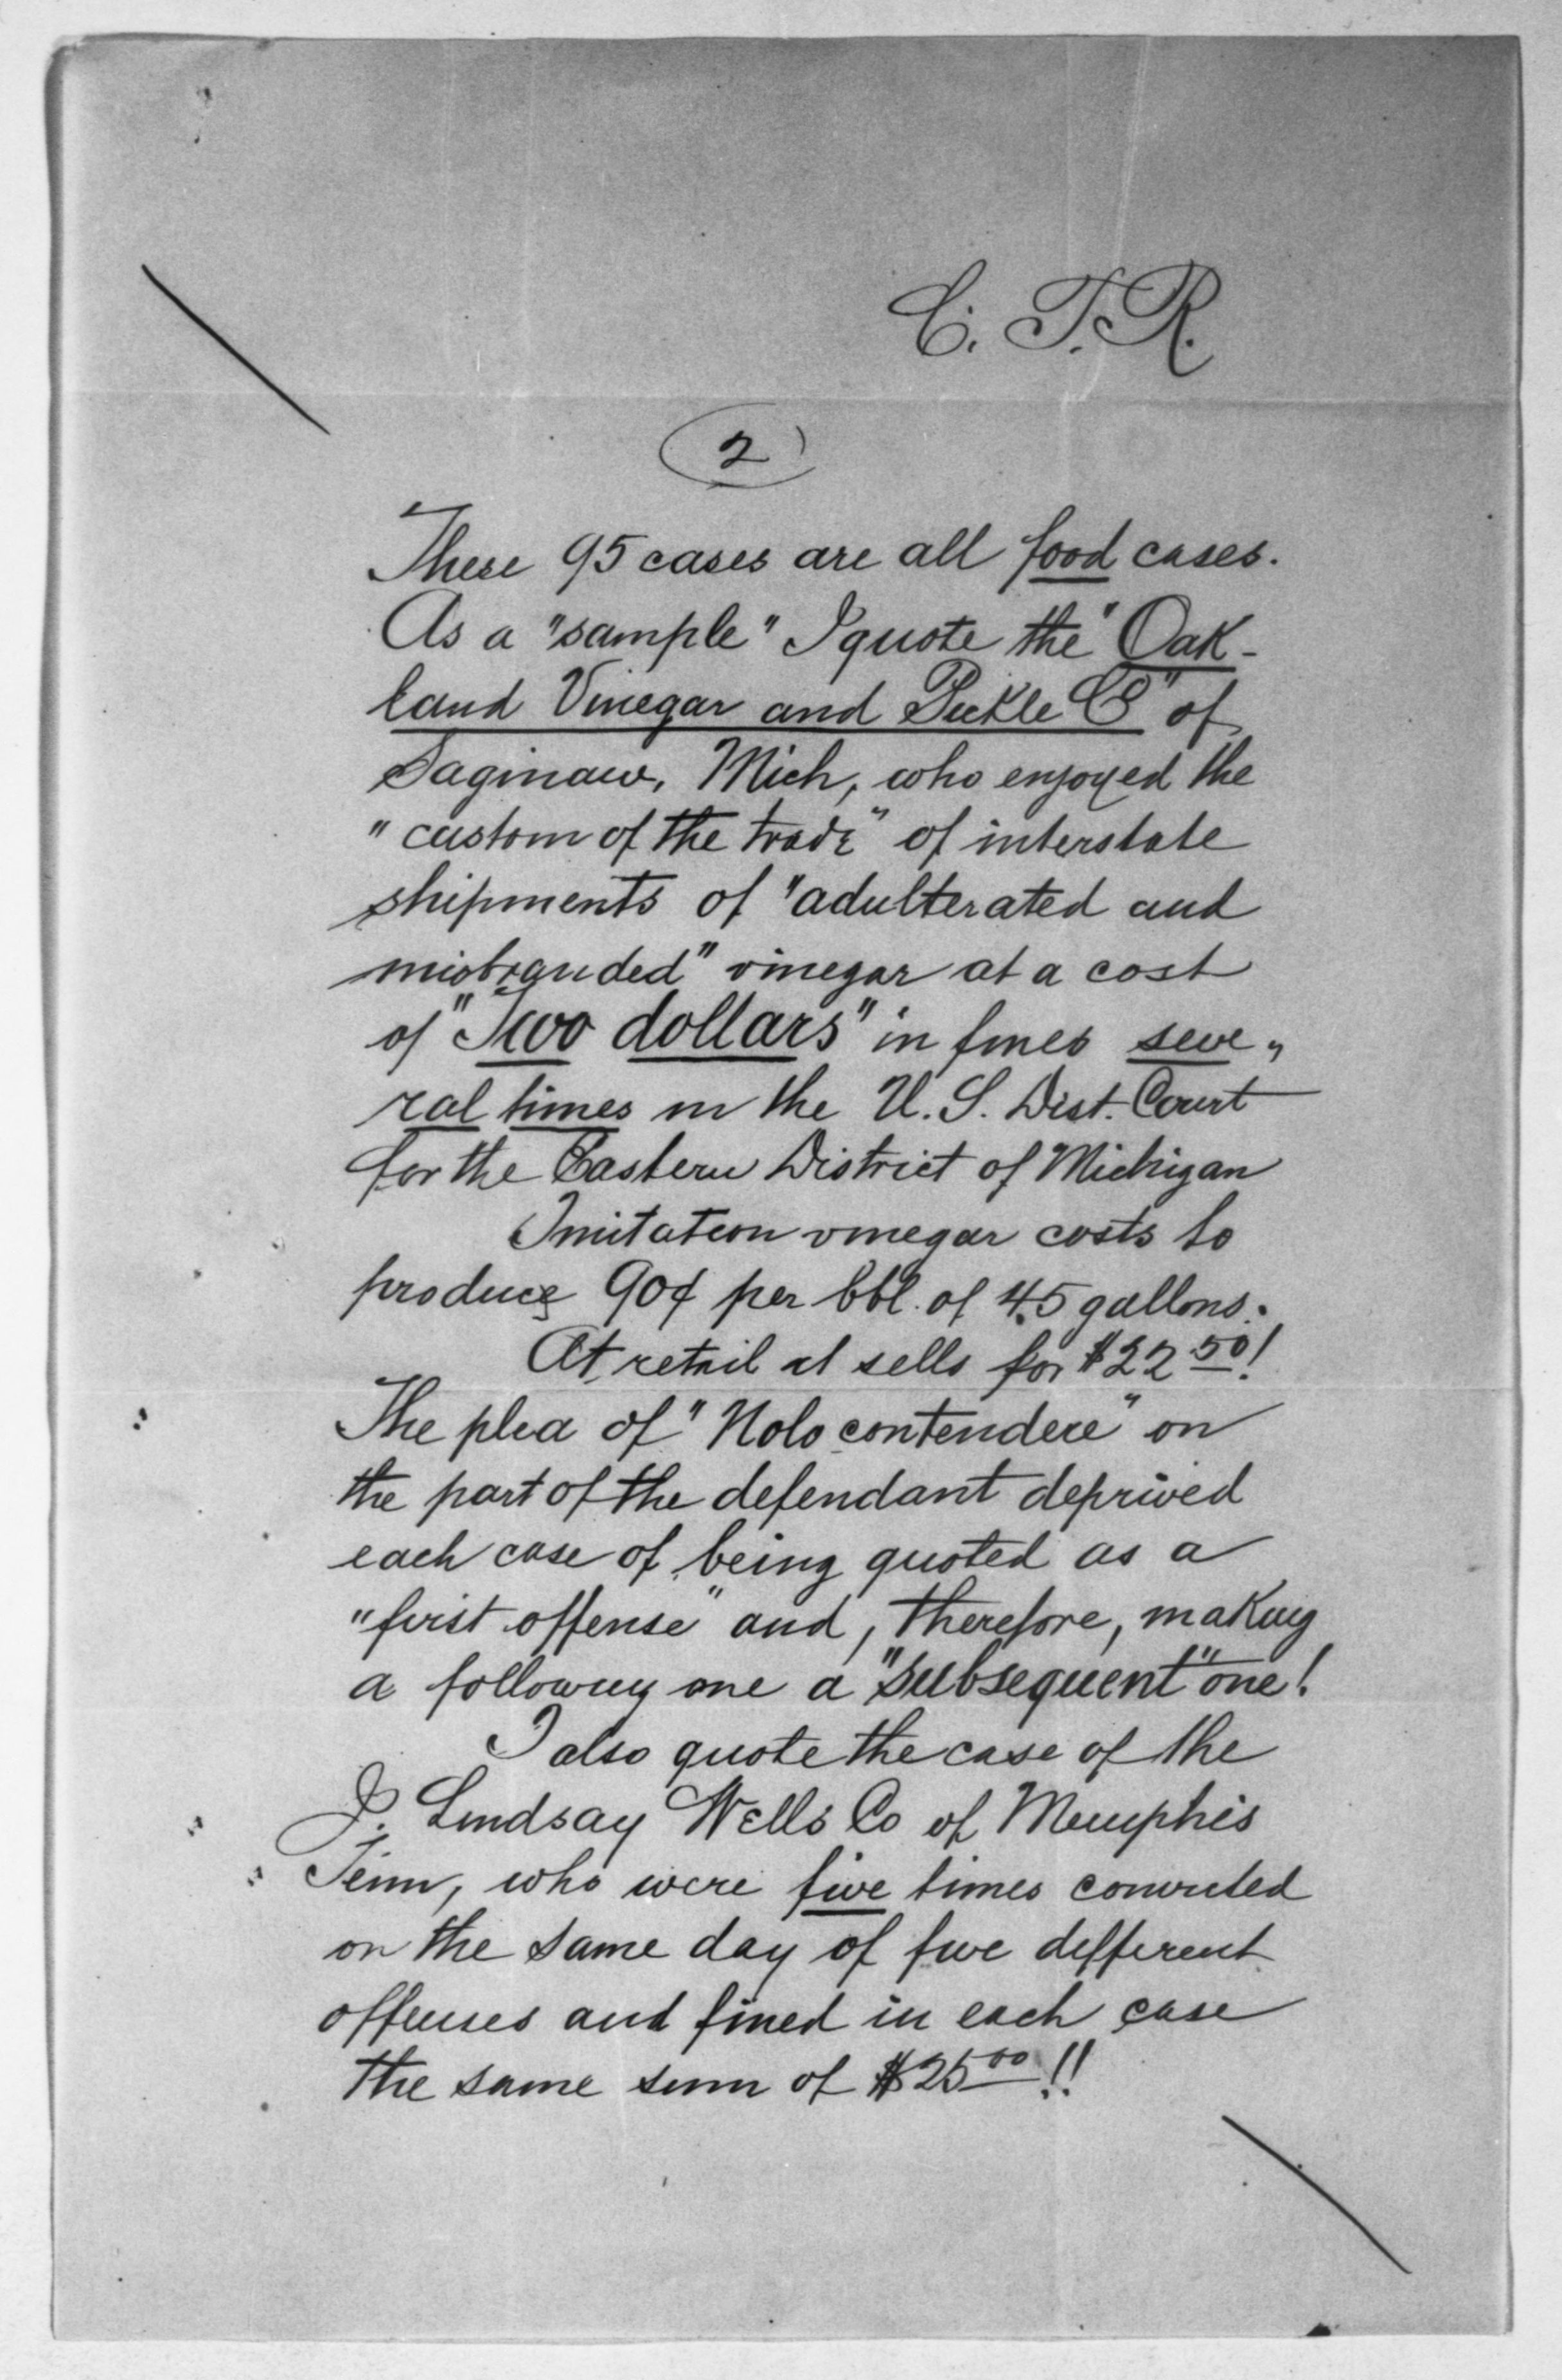 C. T. R.
2
These 95 cases are all food cases.
As a "sample" I quote the "Oak-
land Vinegar and Pickle Co" of
Saginaw, Mich, who enjoyed the
"custom of the trade" of interstate
shipments of "adulterated and
misbranded" vinegar at a cost
of "Two dollars" in fines seve„
ral times in the U. S. Dist. Court
for the Eastern District of Michigan
Imitation vinegar costs to
produce 90¢ per bbl. of 45 gallons.
At retail it sells for $22 50!
The plea of "Nolo contendere" on
the part of the defendant deprived
each case of being quoted as a
"first offense" and, therefore, making
a following one a "subsequent" one!
I also quote the case of the
J. Lindsay Wells Co of Memphis
Tenn, who were five times convicted
on the same day of five different
offenses and fined in each case
the same sum of $25 00!!